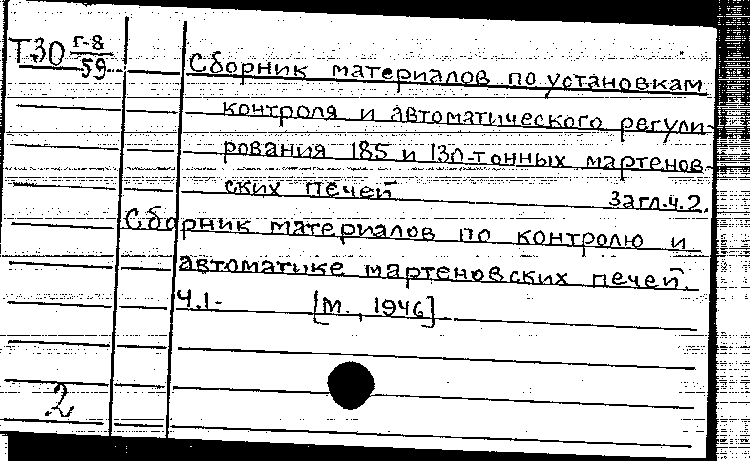 Т30 Г-8
59
Сборник материалов по установкам
контроля и автоматического регули-
рования 185 и 130-тонных мартенов-
ских печей Загл.ч.2.
Сборник материалов по контролю и
автоматике мартеновских печей.
Ч.1.- [М., 1946]
2